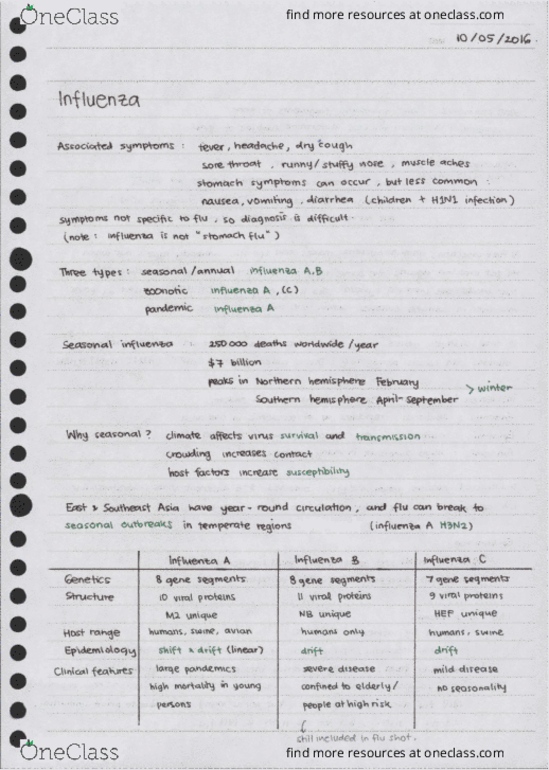 OneClass find more resources at oneclass.com
10/05/2016.
Influenza
Associated symptoms : fever, headache, dry cough
sore throat, runny/stuffy nose, muscle aches
stomach symptoms can occur, but less common :
nausea, vomiting, diarrhea (children + H1N1 infection)
symptoms not specific to flu, so diagnosis is difficult.
(note : influenza is not "stomach flu")
Three types : seasonal/annual influenza A,B
zoonotic influenza A, (C)
pandemic influenza A
Seasonal influenza : 250 000 deaths worldwide/year
$7 billion
peaks in Northern hemisphere February
Southern hemisphere April-September > winter
Why seasonal? climate affects virus survival and transmission
crowding increases contact
host factors increase susceptibility
East & Southeast Asia have year-round circulation, and flu can break to
seasonal outbreaks in temperate regions (influenza A H3N2)
Influenza A Influenza B Influenza C
Genetics 8 gene segments 8 gene segments 7 gene segments
Structure 10 viral proteins 11 viral proteins 9 viral proteins
M2 unique NB unique HEF unique
Host range humans, swine, avian humans only humans, swine
Epidemiology shift & drift (linear) drift drift
Clinical features large pandemics severe disease mild disease
high mortality in young confined to elderly/ no seasonality
persons people at high risk
still included in flu shot.
OneClass find more resources at oneclass.com